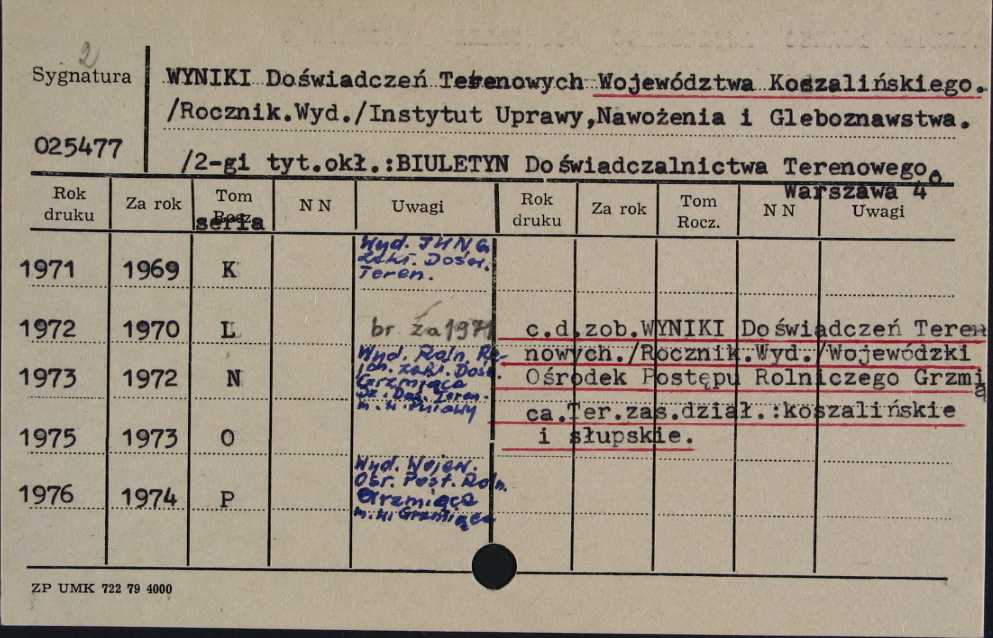 2
Sygnatura WYNIKI Doświadczeń Terenowych Województwa Koszalińskiego.
/Rocznik.Wyd./Instytut Uprawy,Nawożenia i Gleboznawstwa.
025477
/2-gi tyt.okł.:BIULETYN Doświadczalnictwa Terenowego.
Warszawa 4
Rok druku Za rok Tom Rocz. N N Uwagi Rok druku Za rok Tom Rocz. N N Uwagi
seria
1971 1969 K Wyd. IUNG.
Zakł. Dośw.
Teren.
1972 1970 L br za 1971
1973 1972 N Wyd. Roln. Re-
jon. Zakł. Dośw.
Grzmiąca
Teren.
1975 1973 O
1976 1974 P Wyd. Wojew.
Ośr. Post. Roln.
Grzmiąca
Grzmiąca
c.d.zob.WYNIKI Doświadczeń Tere
nowych./Rocznik.Wyd./Wojewódzki
Ośrodek Postępu Rolniczego Grzmią
ca.Ter.zas.dział.:koszalińskie
i słupskie.
ZP UMK 722 79 4000